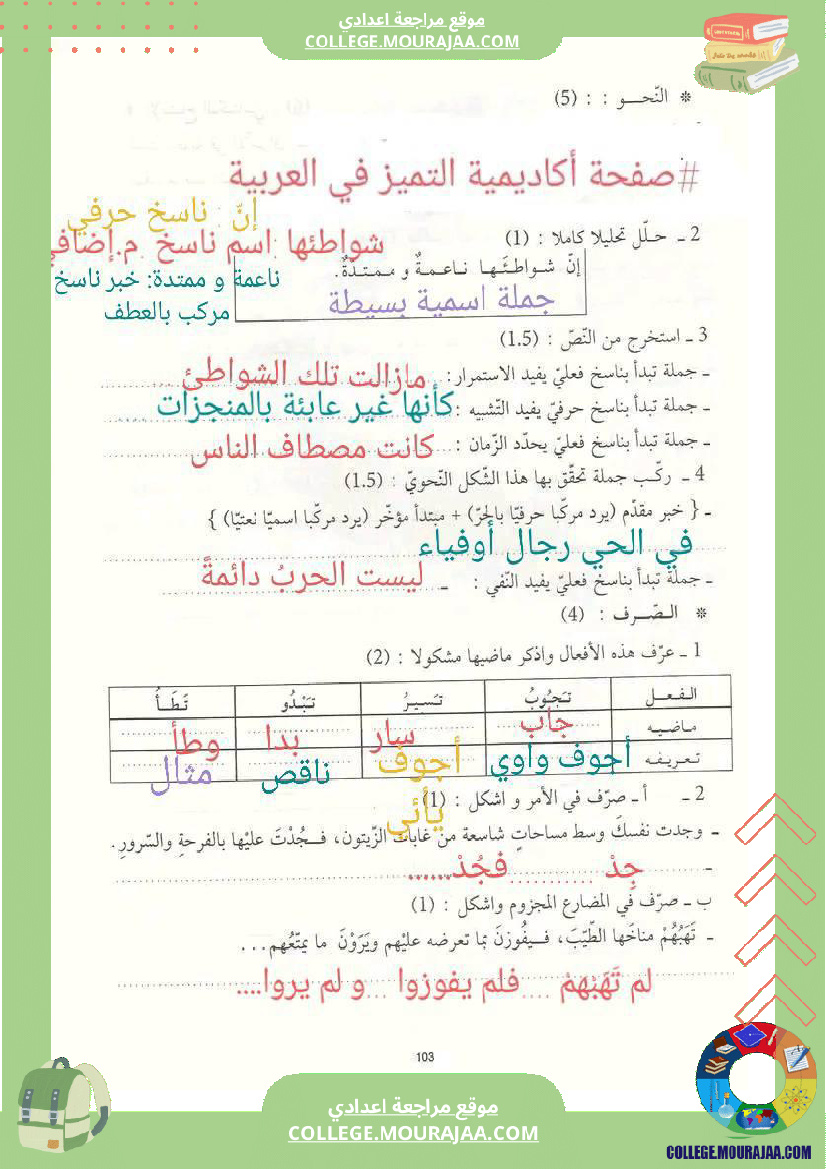 موقع مراجعة اعدادي
COLLEGE.MOURAJAA.COM
* النّحـــو : : (5)
#صفحة أكاديمية التميز في العربية
إنّ : ناسخ حرفي
2 ـ حـلّل تحليلا كاملا : (1)
شواطئها: اسم ناسخ م.إضافي
إنّ شـواطـئَـهـا نـاعـمـةٌ و مـمـتـدّةٌ.
ناعمة و ممتدة: خبر ناسخ
مركب بالعطف
جملة اسمية بسيطة
3 ـ استخرج من النّصّ : (1.5)
ـ جملة تبدأ بناسخ فعليّ يفيد الاستمرار: مازالت تلك الشواطئ
ـ جملة تبدأ بناسخ حرفيّ يفيد التّشبيه : كأنها غير عابئة بالمنجزات
ـ جملة تبدأ بناسخ فعليّ يحدّد الزّمان : كانت مصطاف الناس
4 ـ ركّـب جملة تحقّق بها هذا الشّكل النّحويّ : (1.5)
ـ { خبر مقدّم (يرد مركّبا حرفيّا بالجرّ) + مبتدأ مؤخّر (يرد مركّبا اسميّا نعتيّا) }
في الحي رجال أوفياء
ـ جملة تبدأ بناسخ فعليّ يفيد النّفي : ـ ليست الحربُ دائمةً
* الـصّــرف : (4)
1 ـ عرّف هذه الأفعال واذكر ماضيها مشكولا : (2)
الـفـعـل تـجُوبُ تـسيـرُ تـبْـدُو تَـطَـأُ
ماضـيـه جاب سار بدا وطأ
تـعـريـفـه أجوف واوي أجوف يأئي ناقص مثال
2 ـ أ ـ صرّف في الأمر و اشكل : (1)
ـ وجدت نفسكَ وسط مساحاتٍ شاسعة من غابات الزّيتون، فـجُدْتَ عليْها بالفرحةِ والسّرورِ.
ـ جِدْ ........... فجُدْ......
ب ـ صرّف في المضارع المجزوم واشكل : (1)
ـ تَهَبُهُمْ مناخَها الطّيّبَ، فـيفُوزنَ بما تعرضه عليْهم ويَرَوْنَ ما يمتّعُهم...
لم تَهَبْهمْ ....فلم يفوزوا ...و لم يروا....
103
موقع مراجعة اعدادي
COLLEGE.MOURAJAA.COM
COLLEGE.MOURAJAA.COM